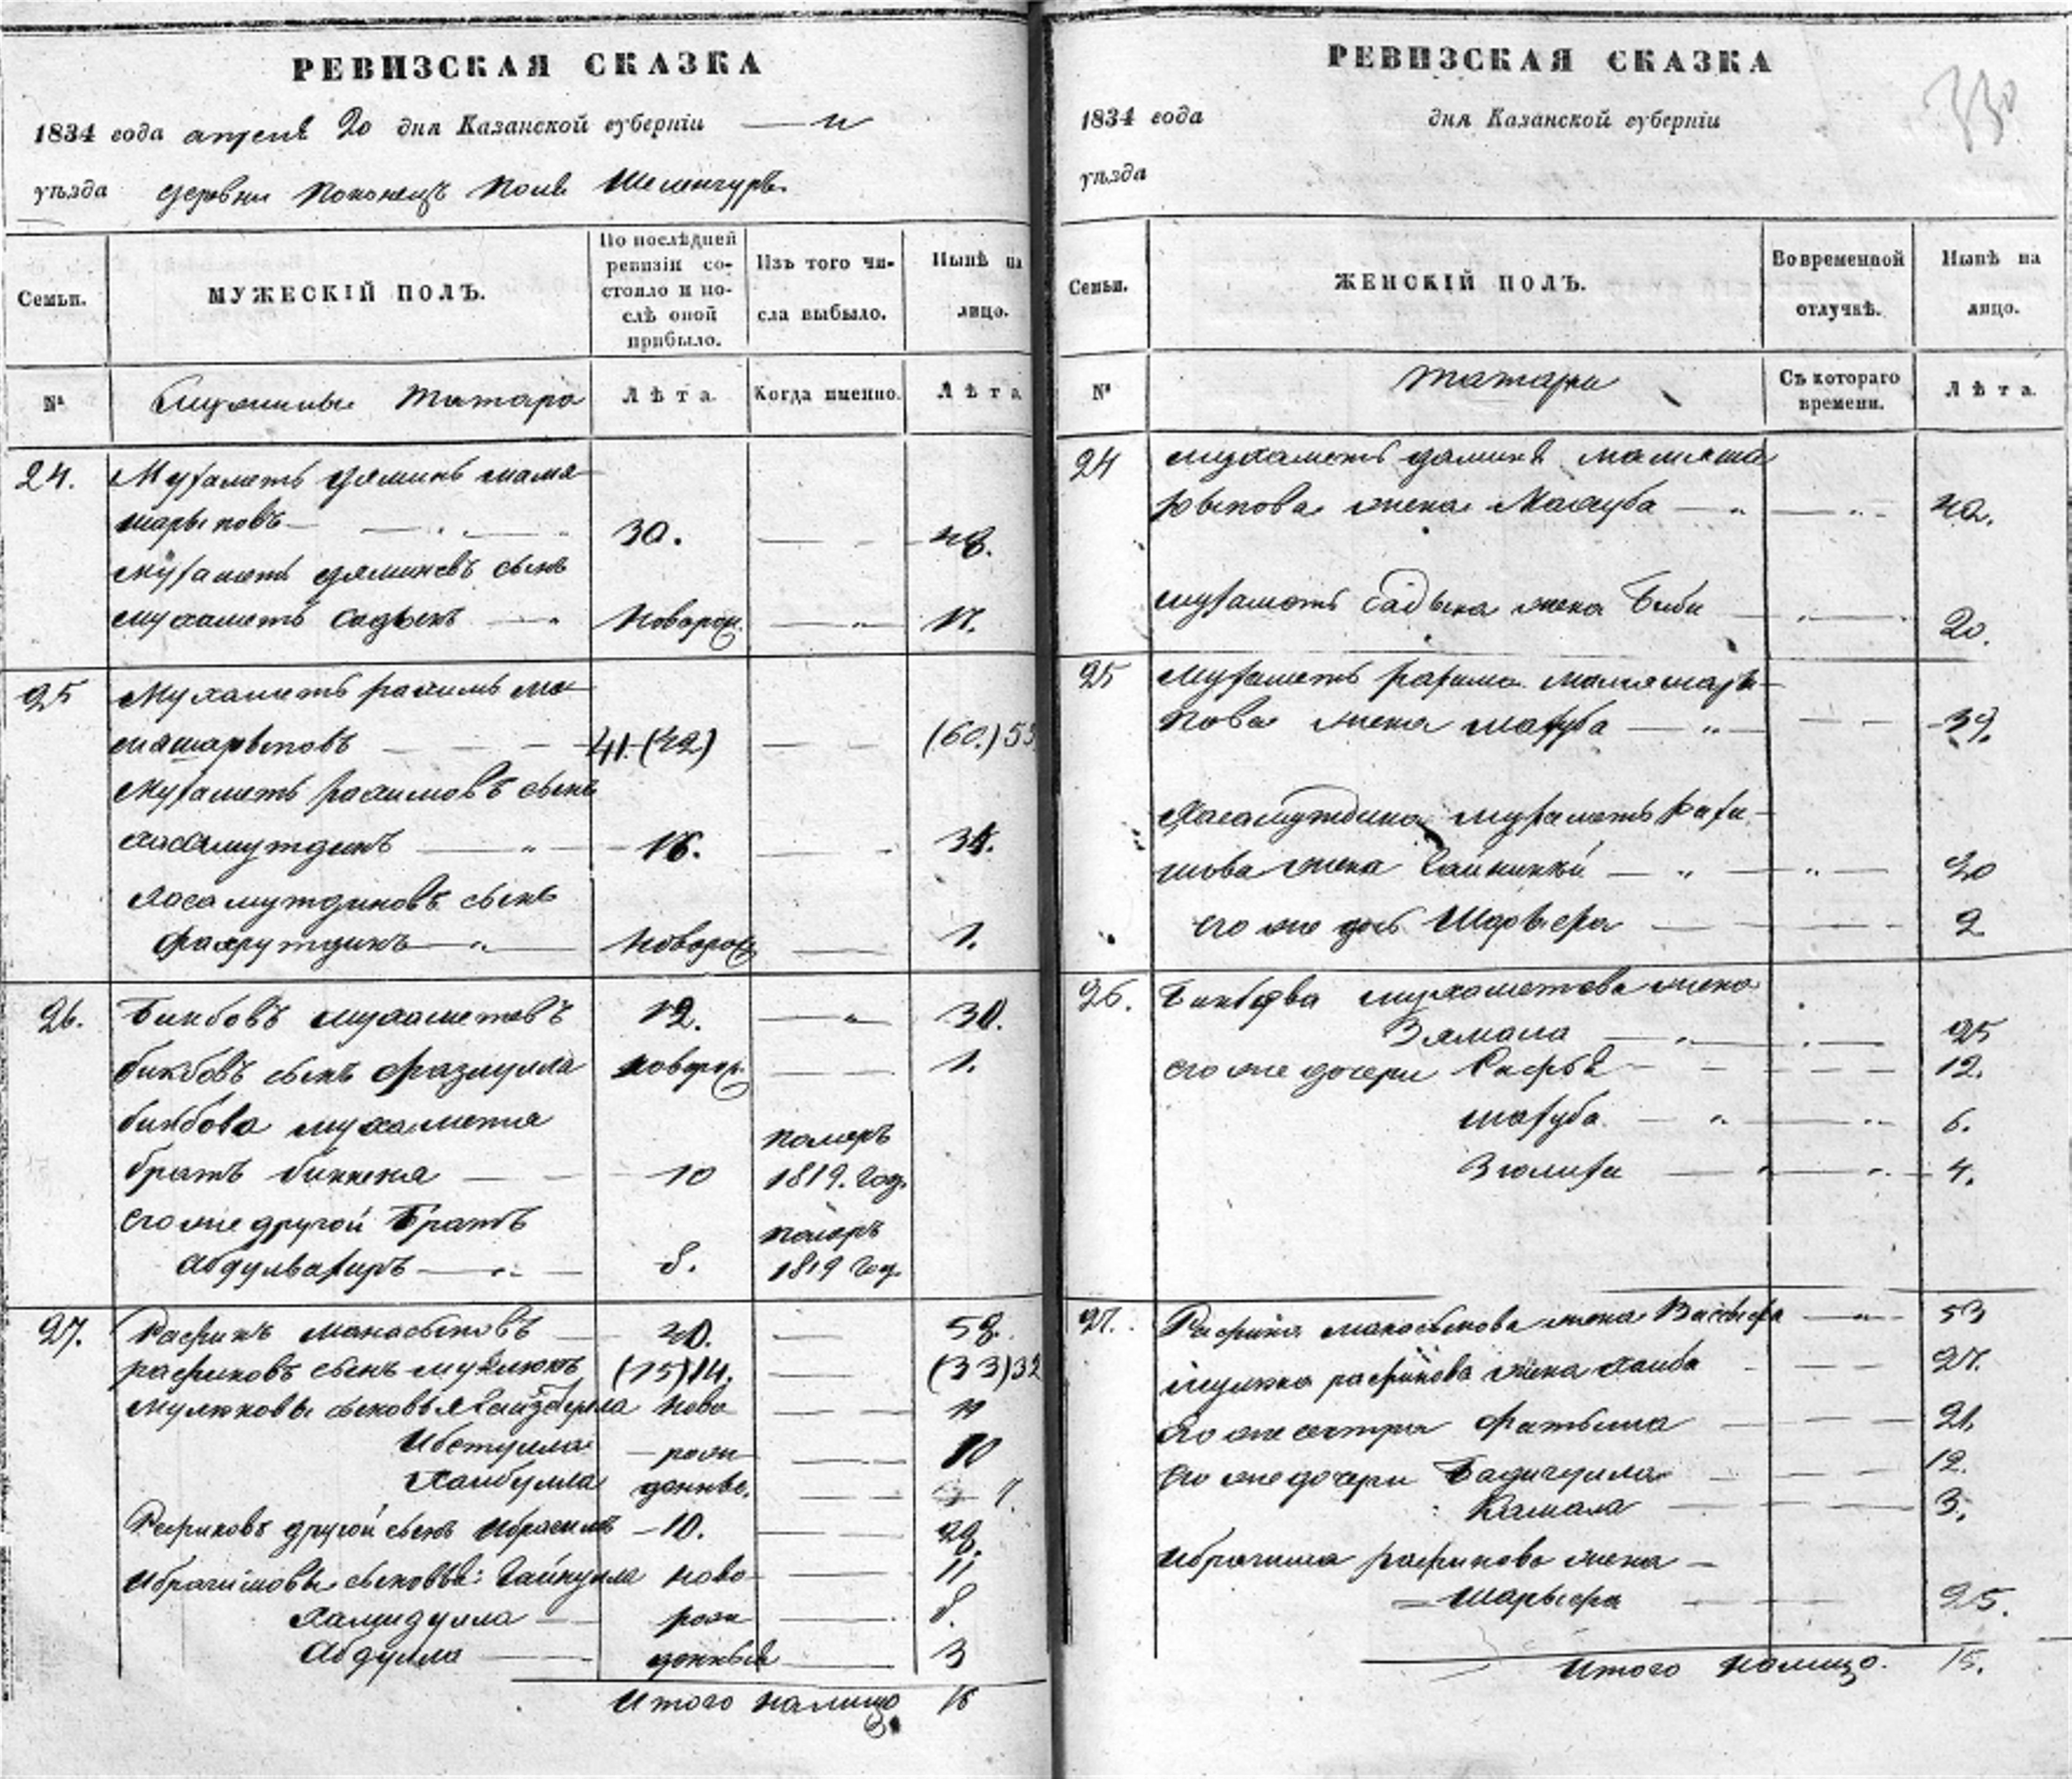 РЕВИЗСКАЯ СКАЗКА
1834 года апреля 20 дня Казанской губерніи
уѣзда деревни Поконецъ Поля
Семьи.
МУЖЕСКІЙ ПОЛЪ.
По послѣдней
ревизіи со-
стояло и по-
слѣ оной
прибыло.
Изъ того чи-
сла выбыло.
Нынѣ на
лицо.
№
татара
Лѣта.
Когда именно.
Лѣта.
24. Мухаметь маме
шарыповъ 30. 48.
Мухаметь сынъ
Мухаметь Садыкъ новорож. 17.
25 Мухаметь рахимъ ма
машарыповъ 41. (42) (60.) 59
Мухаметь рахимовъ сынъ
хасамутдинъ 16. 34.
Хасамутдиновъ сынъ
Фахрутдинъ новорож 1.
26. Бикбовъ мухаметевъ 12. 30.
бикбовъ сынъ Фазлулла новорож. 1.
бикбова мухаметя померъ
братъ биккеня 10 1819. год.
его же другой братъ померъ
Абдулвагапъ 8. 1819 год.
27. Рафикъ манасыповъ 40. 58.
рафиковъ сынъ мулюкъ (15) 14. (33) 32
мулюковы сыновья ново 11
Ибетулла рож 10
Хаибулла денные. 7.
Рафиковъ другой сынъ Ибрагимъ 10. 28.
Ибрагимовы сыновья: Гайнулла ново 11
Хамидулла рож 8.
Абдулла денные 3
Итого налицо 16
РЕВИЗСКАЯ СКАЗКА
330
1834 года дня Казанской губерніи
уѣзда
Семьи.
ЖЕНСКІЙ ПОЛЪ.
Во временной
отлучкѣ.
Нынѣ на
лицо.
№
татарки
Съ котораго
времени.
Лѣта.
24 мухаметь мамяша
рыпова жена Махуба 42.
мухаметь Садыка жена Биби 20.
25 Мухаметь рахима мамяшары
пова жена махуба 39.
Хасамутдина мухаметь рахи
мова жена 20
его же дочь 2
26. Бикбова мухаметева жена
Зямала 25
его же дочери 12.
махуба 6.
Зюлиха 4.
27. Рафика манасыпова жена 53
мулюка рафикова жена хаиба 27.
его же сестра Фатыма 21.
его же дочери 12.
Камала 3.
Ибрагима рафикова жена
25.
Итого налицо. 15.